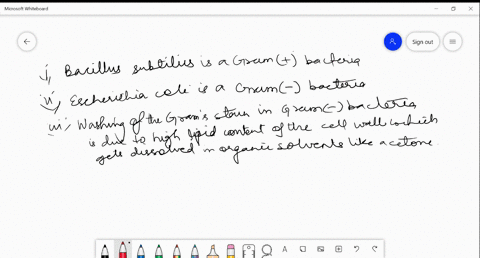 Microsoft Whiteboard
Sign out
i, Bacillus subtilies is a Gram(+) bacteria
ii, Escherichia cole is a Gram(-) bacteria
iii, Washing of the Gram's stain in Gram(-) bacteria
is due to high lipid content of the cell wall which
gets dissolved in organic solvents like acetone